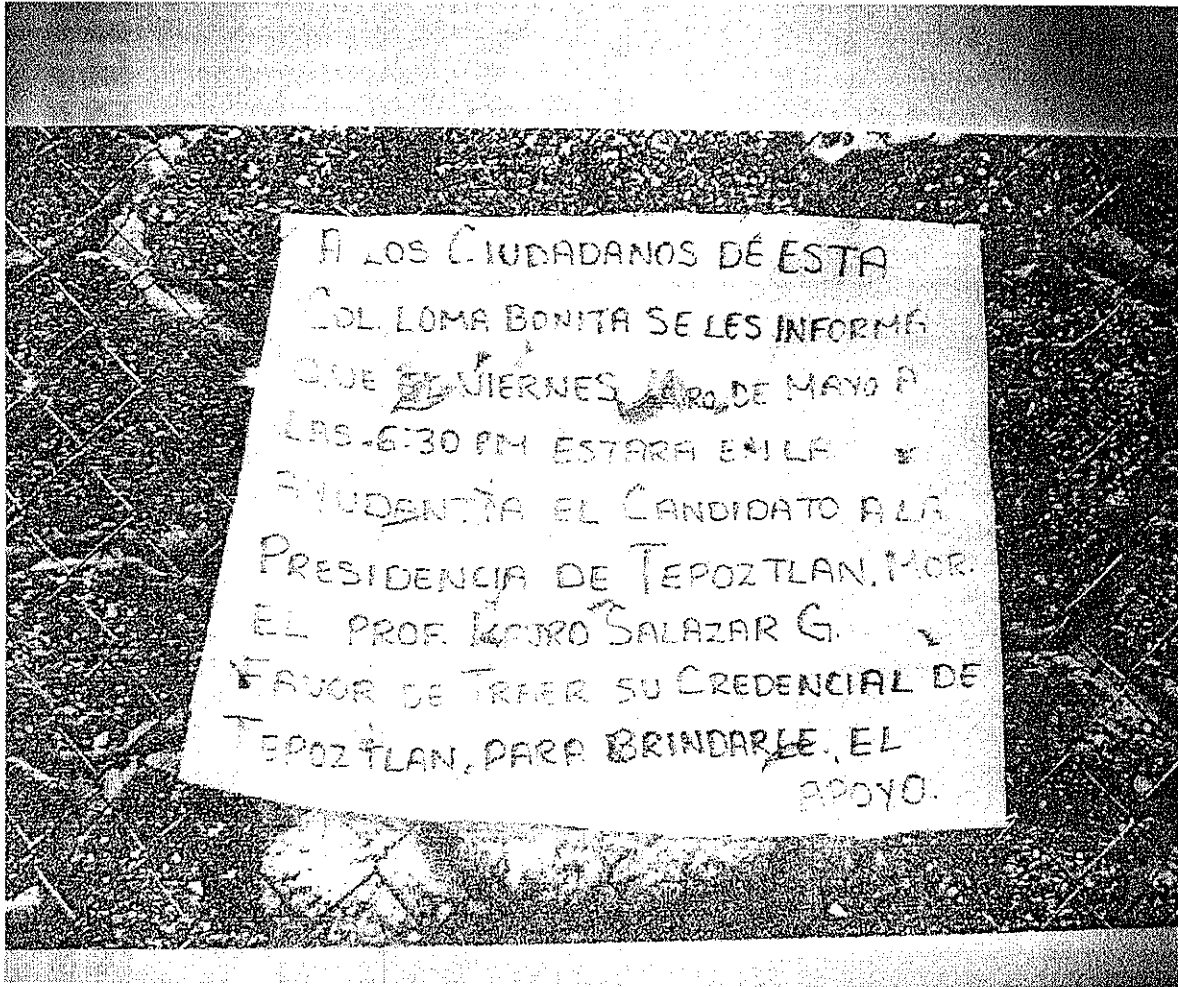 A LOS CIUDADANOS DE ESTA
COL. LOMA BONITA SE LES INFORMA
QUE EL VIERNES 1ERO, DE MAYO A
LAS 6:30 PM ESTARA EN LA
AYUDANTIA EL CANDIDATO A LA
PRESIDENCIA DE TEPOZTLAN, MOR.
EL PROF. SALAZAR G.
FAVOR DE TRAER SU CREDENCIAL DE
TEPOZTLAN, PARA BRINDARLE, EL
APOYO.